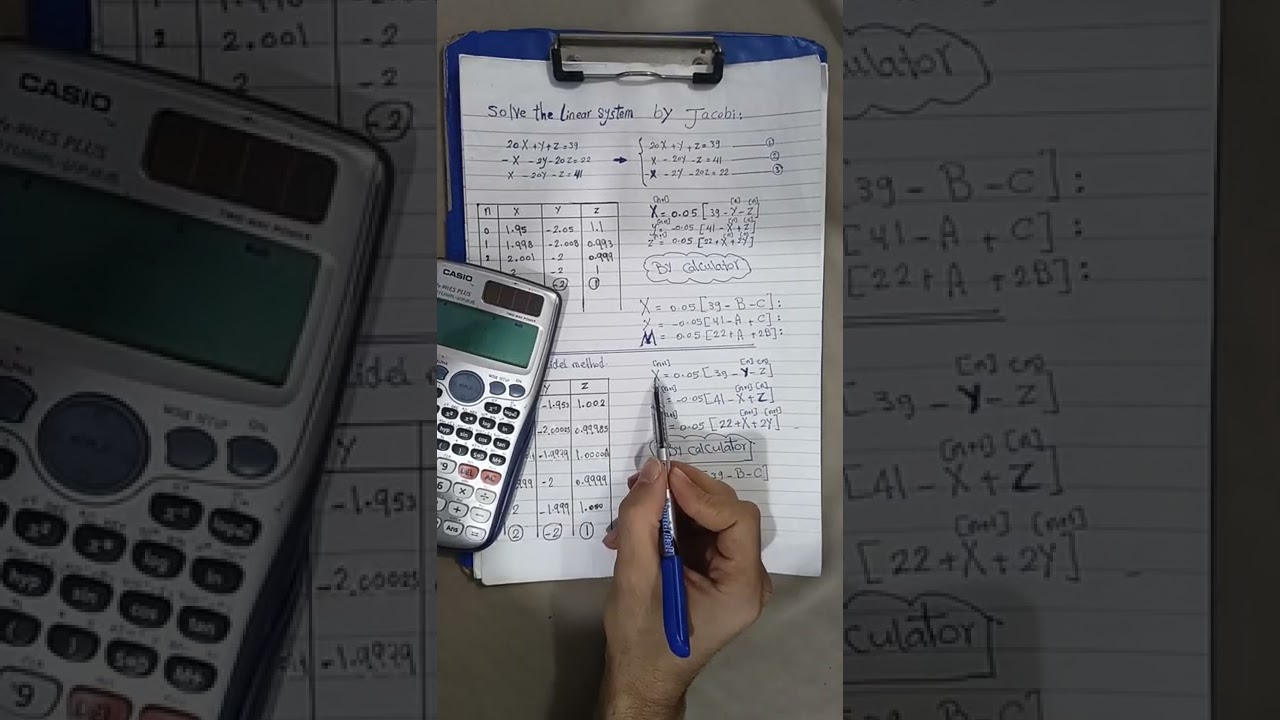 Solve the Linear System by Jacobi:
20X + Y + Z = 39
-X - 2Y - 20Z = 22
X - 20Y - Z = 41
20X + Y + Z = 39 ①
X - 20Y - Z = 41 ②
X - 2Y - 20Z = 22 ③
n X Y Z
0 1.95 -2.05 1.1
1 1.998 -2.008 0.993
2 2.001 -2 0.999
2 -2 1
-2 1
[n+1] [n] [n]
X = 0.05 [39 - Y - Z]
[n+1] [n] [n]
Y = -0.05 [41 - X + Z]
[n+1] [n] [n]
Z = 0.05 [22 + X + 2Y]
By calculator
X = 0.05 [39 - B - C]:
Y = -0.05 [41 - A + C]:
M = 0.05 [22 + A + 2B]:
idel method
Y Z
-1.953 1.002
-2.00025 0.99985
-1.9979 1.0000
999 -2 0.9999
2 -1.999 1.000
2 -2 1
[n+1] [n] [n]
X = 0.05 [39 - Y - Z]
[n+1] [n+1] [n]
= -0.05 [41 - X + Z]
[n+1] [n+1] [n+1]
= 0.05 [22 + X + 2Y]
By calculator
[39 - B - C]
CASIO
ES PLUS
TWO WAY POWER
MODE SETUP
ON
hyp
sin
cos
tan
S⇔D
M+
9 DEL AC
6 × ÷
+ −
Ans =